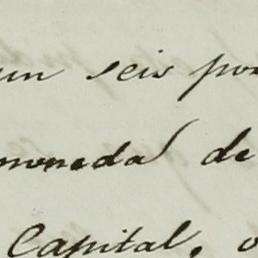 un seis por
moneda de
Capital, o